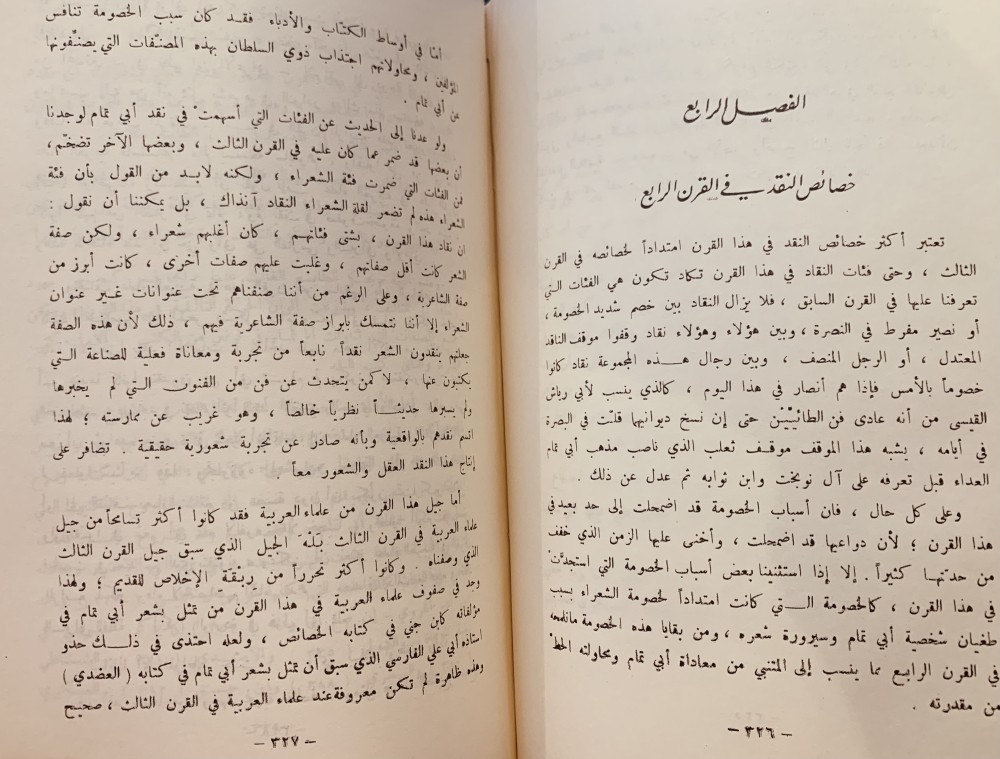 الفصل الرابع
خصائص النقد في القرن الرابع
تعتبر أكثر خصائص النقد في هذا القرن امتداداً لخصائصه في القرن
الثالث ، وحتى فئات النقاد في هذا القرن تكاد تكون هي الفئات التي
تعرفنا عليها في القرن السابق ، فلا يزال النقاد بين خصم شديد الخصومة ،
أو نصير مفرط في النصرة ، وبين هؤلاء وهؤلاء نقاد وقفوا موقف الناقد
المعتدل ، أو الرجل المنصف ، وبين رجال هذه المجموعة نقاد كانوا
خصوماً بالأمس فإذا هم أنصار في هذا اليوم ، كالذي ينسب لأبي رياش
القيسي من أنه عادى فن الطائيَّيْن حتى إن نسخ ديوانيهما قلّت في البصرة
في أيامه ، يشبه هذا الموقف موقف ثعلب الذي ناصب مذهب أبي تمام
العداء قبل تعرفه على آل نوبخت وابن ثوابه ثم عدل عن ذلك .
وعلى كل حال ، فان أسباب الخصومة قد اضمحلت إلى حد بعيد في
هذا القرن ؛ لأن دواعيها قد اضمحلت ، وأخنى عليها الزمن الذي خفف
من حدتها كثيراً . إلا إذا استثنينا بعض أسباب الخصومة التي استجدَّت
في هذا القرن ، كالخصومة التي كانت امتداداً لخصومة الشعراء بسبب
طغيان شخصية أبي تمام وسيرورة شعره ، ومن بقايا هذه الخصومة مانلمحه
في القرن الرابع مما ينسب إلى المتنبي من معاداة أبي تمام ومحاولته الحط
من مقدرته .
– ٣٢٦ –
أمّا في أوساط الكتّاب والأدباء فقد كان سبب الخصومة تنافس
المؤلفين ، ومحاولاتهم اجتذاب ذوي السلطان بهذه المصنّفات التي يصنّفونها
عن أبي تمام .
ولو عدنا إلى الحديث عن الفئات التي أسهمت في نقد أبي تمام لوجدنا
أن بعضها قد ضمر عما كان عليه في القرن الثالث ، وبعضها الآخر تضخّم ،
فمن الفئات التي ضمرت فئة الشعراء ، ولكنه لابد من القول بأن فئة
الشعراء هذه لم تضمر لقلة الشعراء النقاد آنذاك ، بل يمكننا أن نقول :
ان نقاد هذا القرن ، بشتى فئاتهم ، كان أغلبهم شعراء ، ولكن صفة
الشعر كانت أقل صفاتهم ، وغلبت عليهم صفات أخرى ، كانت أبرز من
صفة الشاعرية ، وعلى الرغم من أننا صنفناهم تحت عنوانات غير عنوان
الشعراء إلا أننا نتمسك بابراز صفة الشاعرية فيهم ، ذلك لأن هذه الصفة
جعلتهم ينقدون الشعر نقداً نابعاً من تجربة ومعاناة فعلية للصناعة التي
يكتبون عنها ، لا كمن يتحدث عن فن من الفنون التي لم يخبرها
ولم يسبرها حديثاً نظرياً خالصاً ، وهو غريب عن ممارسته ؛ لهذا
اتسم نقدهم بالواقعية وبأنه صادر عن تجربة شعورية حقيقية . تضافر على
إنتاج هذا النقد العقل والشعور معاً .
أما جيل هذا القرن من علماء العربية فقد كانوا أكثر تسامحاً من جيل
علماء العربية في القرن الثالث بَلْهَ الجيل الذي سبق جيل القرن الثالث
الذي وصفناه . وكانوا أكثر تحرراً من رِبْقَةِ الإخلاص للقديم ؛ ولهذا
وجد في صفوف علماء العربية في هذا القرن من تمثل بشعر أبي تمام في
مؤلفاته كابن جني في كتابه الخصائص ، ولعله احتذى في ذلك حذو
استاذه أبي علي الفارسي الذي سبق أن تمثل بشعر أبي تمام في كتابه ( العضدي )
وهذه ظاهرة لم تكن معروفة عند علماء العربية في القرن الثالث ، صحيح
– ٣٢٧ –